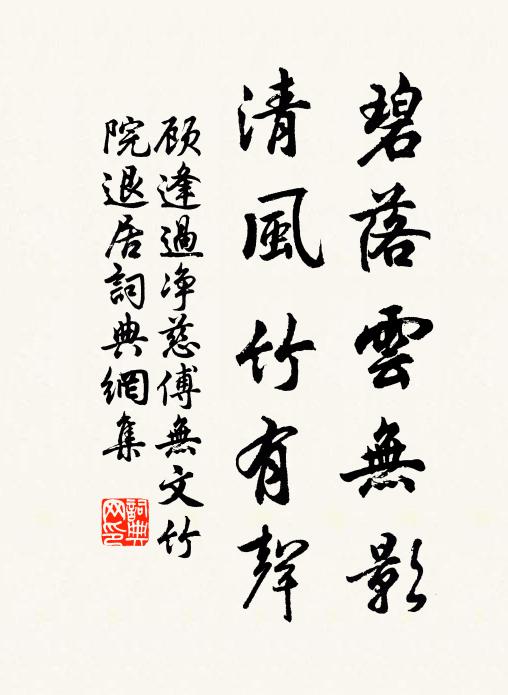 碧落雲無影
清風竹有聲
顾逢過净慈傅無文竹
院退居詞典網集
詞典
网印